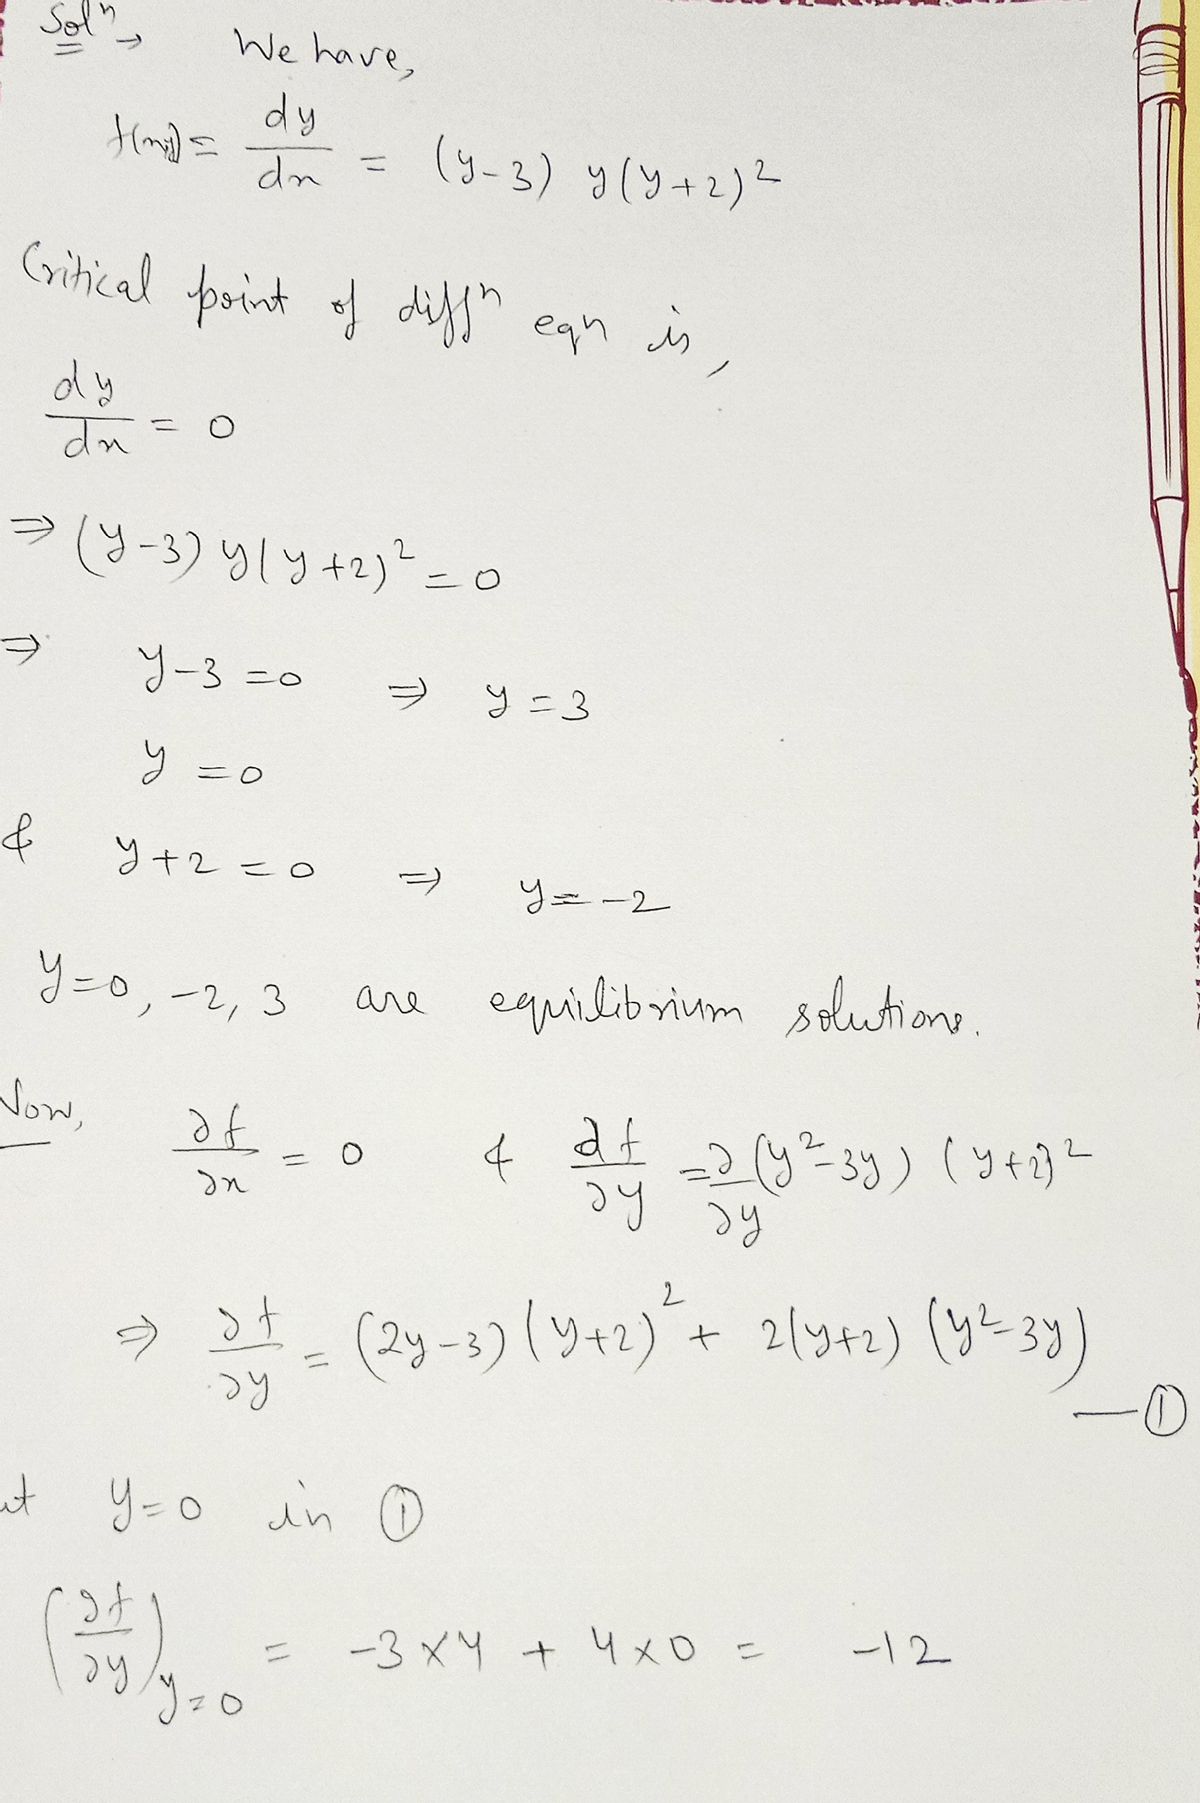 Solⁿ →
We have,
f(x,y) = dy/dx = (y-3) y(y+2)²
Critical point of diffⁿ eqn is,
dy/dx = 0
⇒ (y-3) y(y+2)² = 0
⇒ y-3 = 0 ⇒ y = 3
y = 0
& y+2 = 0 ⇒ y = -2
y=0, -2, 3 are equilibrium solutions.
Now, ∂f/∂x = 0 & ∂f/∂y = ∂/∂y (y²-3y) (y+2)²
⇒ ∂f/∂y = (2y-3) (y+2)² + 2(y+2) (y²-3y) — ①
y=0 in ①
(∂f/∂y)y=0 = -3×4 + 4×0 = -12